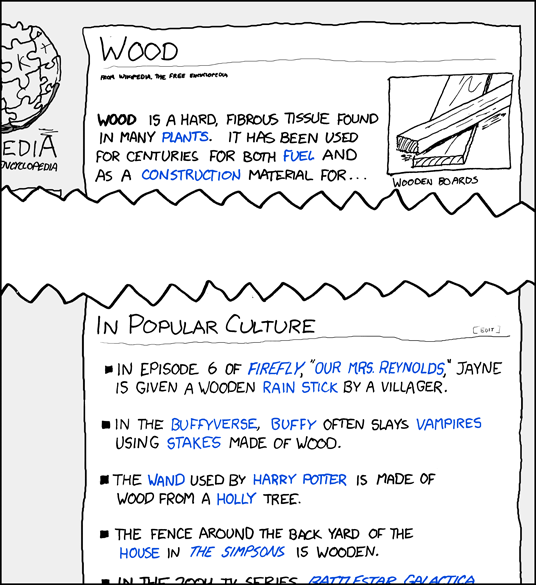 WOOD
FROM WIKIPEDIA, THE FREE ENCYCLOPEDIA
WOOD IS A HARD, FIBROUS TISSUE FOUND
IN MANY PLANTS. IT HAS BEEN USED
FOR CENTURIES FOR BOTH FUEL AND
AS A CONSTRUCTION MATERIAL FOR...
EDIA
NCYCLOPEDIA
WOODEN BOARDS
IN POPULAR CULTURE
[EDIT]
IN EPISODE 6 OF FIREFLY, "OUR MRS. REYNOLDS," JAYNE
IS GIVEN A WOODEN RAIN STICK BY A VILLAGER.
IN THE BUFFYVERSE, BUFFY OFTEN SLAYS VAMPIRES
USING STAKES MADE OF WOOD.
THE WAND USED BY HARRY POTTER IS MADE OF
WOOD FROM A HOLLY TREE.
THE FENCE AROUND THE BACK YARD OF THE
HOUSE IN THE SIMPSONS IS WOODEN.
IN THE 2004 TV SERIES BATTLESTAR GALACTICA